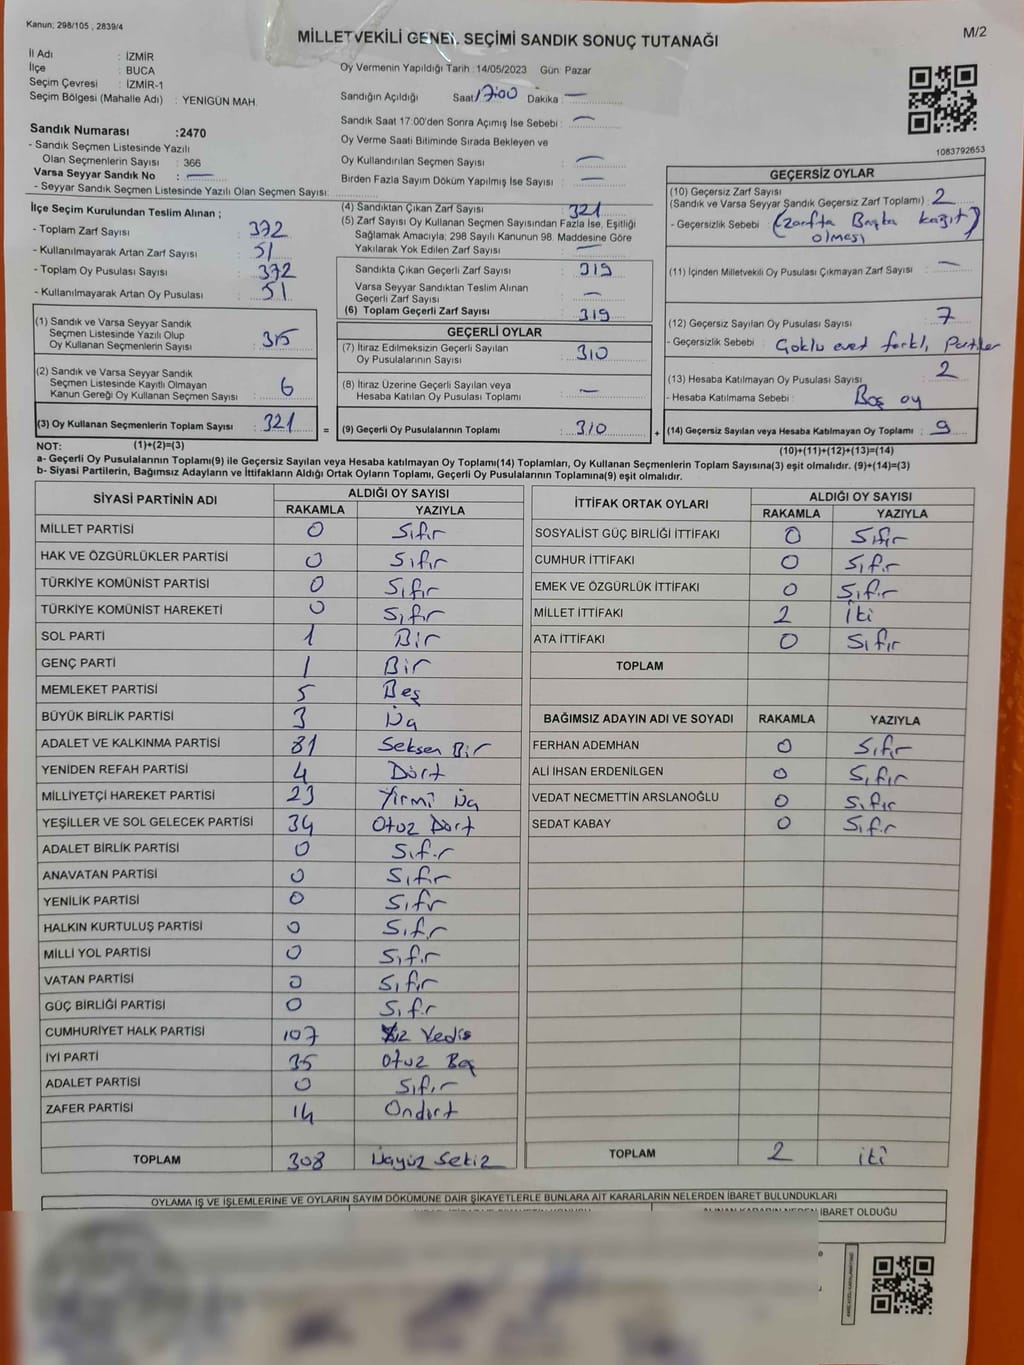 Kanun; 298/105 , 2839/4
MİLLETVEKİLİ GENEL SEÇİMİ SANDIK SONUÇ TUTANAĞI
M/2
İl Adı : İZMİR
İlçe : BUCA
Seçim Çevresi : İZMİR-1
Seçim Bölgesi (Mahalle Adı) : YENİGÜN MAH.
Sandık Numarası :2470
- Sandık Seçmen Listesinde Yazılı
Olan Seçmenlerin Sayısı : 366
Varsa Seyyar Sandık No : —
- Seyyar Sandık Seçmen Listesinde Yazılı Olan Seçmen Sayısı:
Oy Vermenin Yapıldığı Tarih :14/05/2023 Gün: Pazar
Sandığın Açıldığı Saat 17:00 Dakika : —
Sandık Saat 17:00'den Sonra Açımış İse Sebebi : —
Oy Verme Saati Bitiminde Sırada Bekleyen ve
Oy Kullandırılan Seçmen Sayısı : —
Birden Fazla Sayım Döküm Yapılmış İse Sayısı : —
1083792653
İlçe Seçim Kurulundan Teslim Alınan ;
- Toplam Zarf Sayısı : 372
- Kullanılmayarak Artan Zarf Sayısı : 51
- Toplam Oy Pusulası Sayısı : 372
- Kullanılmayarak Artan Oy Pusulası : 51
(1) Sandık ve Varsa Seyyar Sandık
Seçmen Listesinde Yazılı Olup
Oy Kullanan Seçmenlerin Sayısı : 315
(2) Sandık ve Varsa Seyyar Sandık
Seçmen Listesinde Kayıtlı Olmayan
Kanun Gereği Oy Kullanan Seçmen Sayısı : 6
(3) Oy Kullanan Seçmenlerin Toplam Sayısı : 321 =
(1)+(2)=(3)
(4) Sandıktan Çıkan Zarf Sayısı : 321
(5) Zarf Sayısı Oy Kullanan Seçmen Sayısından Fazla İse, Eşitliği
Sağlamak Amacıyla; 298 Sayılı Kanunun 98. Maddesine Göre
Yakılarak Yok Edilen Zarf Sayısı : —
Sandıkta Çıkan Geçerli Zarf Sayısı : 319
Varsa Seyyar Sandıktan Teslim Alınan
Geçerli Zarf Sayısı : —
(6) Toplam Geçerli Zarf Sayısı : 319
GEÇERLİ OYLAR
(7) İtiraz Edilmeksizin Geçerli Sayılan
Oy Pusulalarının Sayısı : 310
(8) İtiraz Üzerine Geçerli Sayılan veya
Hesaba Katılan Oy Pusulası Toplamı : —
(9) Geçerli Oy Pusulalarının Toplamı : 310 +
GEÇERSİZ OYLAR
(10) Geçersiz Zarf Sayısı
(Sandık ve Varsa Seyyar Sandık Geçersiz Zarf Toplamı) : 2
- Geçersizlik Sebebi : (zarfta Başka kağıt
olması)
(11) İçinden Milletvekili Oy Pusulası Çıkmayan Zarf Sayısı : —
(12) Geçersiz Sayılan Oy Pusulası Sayısı : 7
- Geçersizlik Sebebi : Çoklu evet farklı Partiler
(13) Hesaba Katılmayan Oy Pusulası Sayısı : 2
- Hesaba Katılmama Sebebi : Boş oy
(14) Geçersiz Sayılan veya Hesaba Katılmayan Oy Toplamı : 9
(10)+(11)+(12)+(13)=(14)
NOT:
a- Geçerli Oy Pusulalarının Toplamı(9) ile Geçersiz Sayılan veya Hesaba katılmayan Oy Toplamı(14) Toplamları, Oy Kullanan Seçmenlerin Toplam Sayısına(3) eşit olmalıdır. (9)+(14)=(3)
b- Siyasi Partilerin, Bağımsız Adayların ve İttifakların Aldığı Ortak Oyların Toplamı, Geçerli Oy Pusulalarının Toplamına(9) eşit olmalıdır.
SİYASİ PARTİNİN ADI ALDIĞI OY SAYISI
RAKAMLA YAZIYLA
MİLLET PARTİSİ 0 Sıfır
HAK VE ÖZGÜRLÜKLER PARTİSİ 0 Sıfır
TÜRKİYE KOMÜNİST PARTİSİ 0 Sıfır
TÜRKİYE KOMÜNİST HAREKETİ 0 Sıfır
SOL PARTİ 1 Bir
GENÇ PARTİ 1 Bir
MEMLEKET PARTİSİ 5 Beş
BÜYÜK BİRLİK PARTİSİ 3 Üç
ADALET VE KALKINMA PARTİSİ 81 Seksen Bir
YENİDEN REFAH PARTİSİ 4 Dört
MİLLİYETÇİ HAREKET PARTİSİ 23 Yirmi Üç
YEŞİLLER VE SOL GELECEK PARTİSİ 34 Otuz Dört
ADALET BİRLİK PARTİSİ 0 Sıfır
ANAVATAN PARTİSİ 0 Sıfır
YENİLİK PARTİSİ 0 Sıfır
HALKIN KURTULUŞ PARTİSİ 0 Sıfır
MİLLİ YOL PARTİSİ 0 Sıfır
VATAN PARTİSİ 0 Sıfır
GÜÇ BİRLİĞİ PARTİSİ 0 Sıfır
CUMHURİYET HALK PARTİSİ 107 Yüz Yedi
İYİ PARTİ 35 Otuz Beş
ADALET PARTİSİ 0 Sıfır
ZAFER PARTİSİ 14 Ondört
TOPLAM 308 Üçyüz Sekiz
İTTİFAK ORTAK OYLARI ALDIĞI OY SAYISI
RAKAMLA YAZIYLA
SOSYALİST GÜÇ BİRLİĞİ İTTİFAKI 0 Sıfır
CUMHUR İTTİFAKI 0 Sıfır
EMEK VE ÖZGÜRLÜK İTTİFAKI 0 Sıfır
MİLLET İTTİFAKI 2 İki
ATA İTTİFAKI 0 Sıfır
TOPLAM
BAĞIMSIZ ADAYIN ADI VE SOYADI RAKAMLA YAZIYLA
FERHAN ADEMHAN 0 Sıfır
ALİ İHSAN ERDENİLGEN 0 Sıfır
VEDAT NECMETTİN ARSLANOĞLU 0 Sıfır
SEDAT KABAY 0 Sıfır
TOPLAM 2 iki
OYLAMA İŞ VE İŞLEMLERİNE VE OYLARIN SAYIM DÖKÜMÜNE DAİR ŞİKAYETLERLE BUNLARA AİT KARARLARIN NELERDEN İBARET BULUNDUKLARI
ALINAN KARARIN NEDEN İBARET OLDUĞU